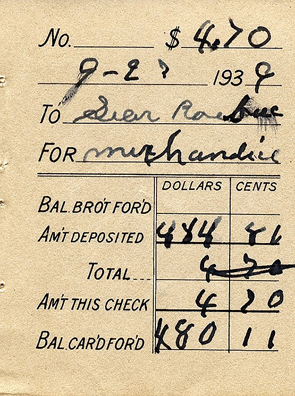 No. $ 4.70
9-27 1939
To Sear Roebuc
For merchandise
DOLLARS CENTS
BAL. BRO'T FOR'D
AM'T DEPOSITED 484 81
TOTAL 4 70
AM'T THIS CHECK 4 70
BAL. CAR'D FOR'D 480 11